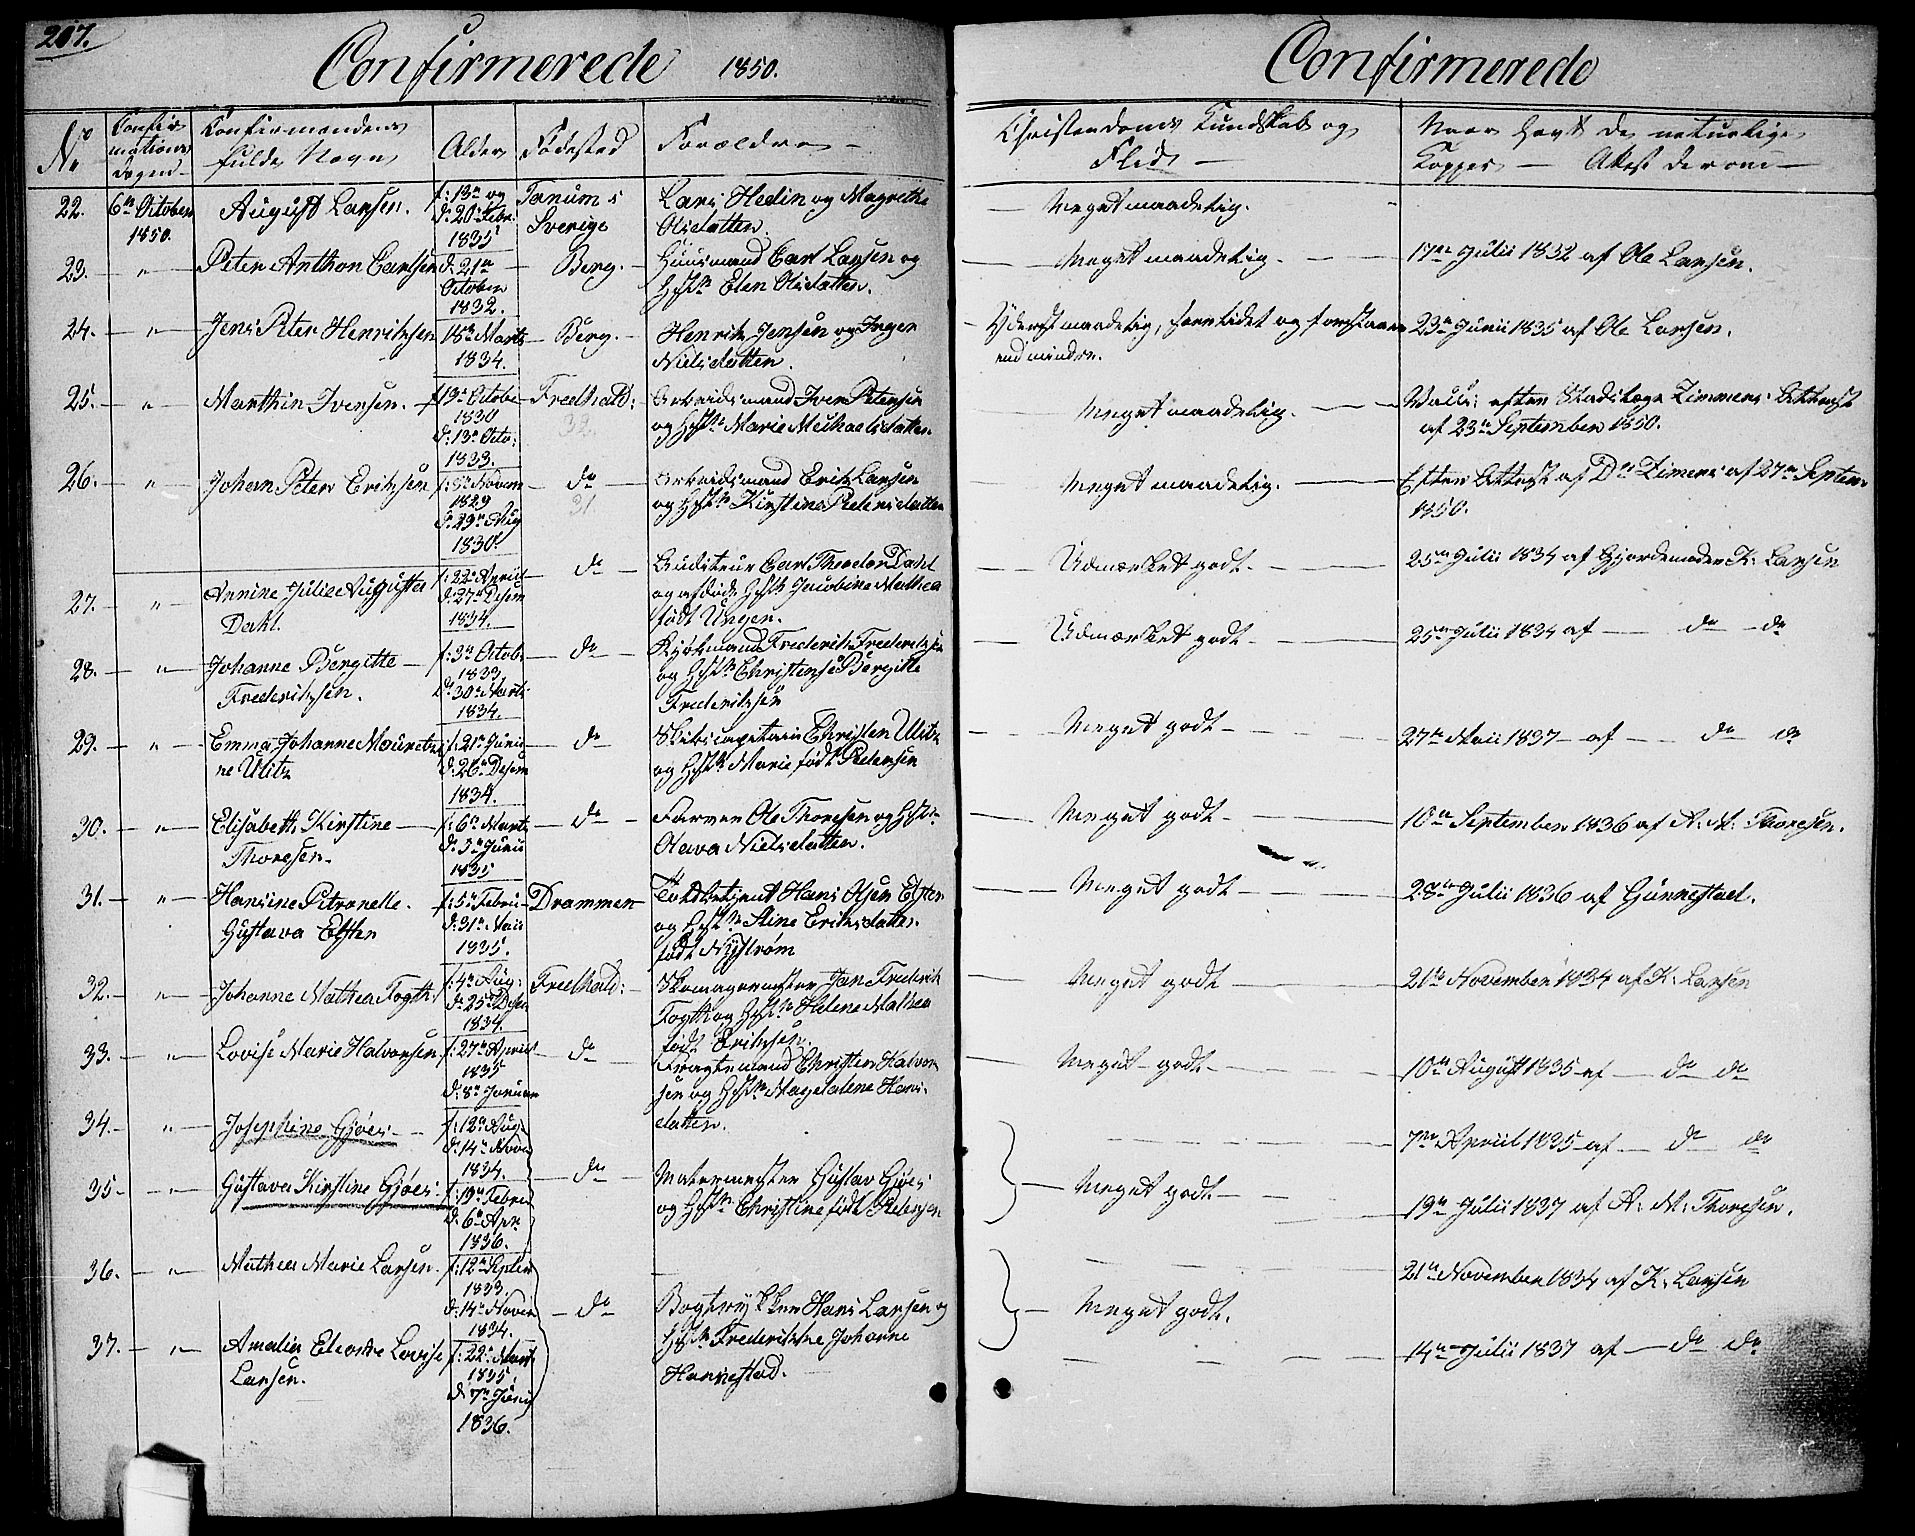 207.
Confirmerede 1850.
No
Confir
mations
dagen
Confirmandens
fulde Navn
Alder
Fødested
Forældre
22.
6te October
1850.
August Larsen.
f: 13de og
d: 20de Febr:
1835
Tanum i
Sverige
Lars Hedin og Magrethe
Olsdatter.
23. — " —
Peter Anthon Carlsen
d: 21de
October
1832.
Berg.
Huusmand Carl Larsen og
Hst: Elen Olsdatter.
24. — " —
Jens Peter Henriksen
18de Marts
1834.
Berg.
Henrik Jensen og Inger
Nielsdatter.
25. — " —
Marthin Iversen.
f 13de Octobr
1830
d: 13de Octo:
1833.
Fredhald:
32.
Arbeidsmand Iver Petersen
og Hst: Marie Michaelsdatter.
26. — " —
Johan Peter Eriksen
f: 5te Novem
1829
d: 29de Aug
1830.
do
31.
Arbeidsmand Erik Larsen
og Hst: Kirstine Pedersdatter
27. — " —
Annine Julie Augusta
Dahl.
f: 22de April
d: 27de Desem
1834.
do
Auditeur Carl Theodor Dahl
og afdøde Hst: Jacobine Mathea
født Unger.
28. — " —
Johanne Bergitte
Frederiksen.
f: 3de Octob:
1833
d: 30te Marts
1834.
do
Kjøbmand Frederik Frederiksen
og Hst: Christense Bergitte
Frederiksen
29. — " —
Emma Johanne Mouretze
ne Ulitz
f: 21de Junii
d: 26de Desem
1834.
do
Skibscapitain Christen Ulitz
og Hst: Marie født Pedersen
30. — " —
Elisabeth Kirstine
Thoresen.
f: 6te Marts
d: 5te Junii
1835
do
Farver Ole Thoresen og Hst:
Olava Nielsdatter.
31. — " —
Hansine Petronelle
Gustava Elster
f: 5te Febru
d: 31te Maii
1835.
Drammen
Toldbetjent Hans Olsen Elster
og Hst: Stine Eriksdatter
født Nystrøm
32. — " —
Johanne Mathea Fogth.
f: 4de Aug:
d: 25de Desem
1834.
Fredhald:
Skomagermester Jan Frederik
Fogth og Hst: Helene Mathea
født Eriksen.
33. — " —
Lovise Marie Halvorsen
f: 27de April
1835
d: 8de Januar
do
Fragtemand Christen Halvor
sen og Hst: Magdalene Hans
datter.
34. — " —
Josephine Gjøes
f: 12de Aug
d: 14de Nove
1834.
35. — " —
Gustava Kirstine Gjøes
f: 19de Febru
d: 6te Apr
1836.
do
Malermester Gustav Gjøes
og Hst: Christine født Petersen
36. — " —
Mathea Marie Larsen.
f: 12te Septem
1833
d: 14de Novem
1834.
do
Bogtrykker Hans Larsen og
Hst: Frederikke Johanne
Hannestad.
37. — " —
Amalia Elvaste Lovise
Larsen.
f: 22de Marts
1835.
d: 7de Junii
1836.
Confirmerede
Christendoms Kundskab og
Flid
Naar havt de naturlige
Kopper — Attest derom
Meget maadelig.
Meget maadelig. 17de Julii 1832 af Ole Larsen.
Yderst maadelig, 23de Junii 1835 af Ole Larsen.
end mindre.
Meget maadelig. Vacc: efter Stadslæge Zimmers: Attest
af 23de September 1850.
Meget maadelig. Efter Attest af Dr Zimers af 27de Septem
1850.
Udmærket godt. 25de Julii 1834 af Gjordemoder K: Larsen
Udmærket godt 25de Julii 1834 af — do do
Meget godt 27de Maii 1837 af — do do
Meget godt 10de September 1836 af A: M: Thoresen.
Meget godt 28de Julii 1836 af Gunnestad.
Meget godt 21de November 1834 af K: Larsen
Meget godt 10de August 1835 af — do do
7de April 1835 af — do do
Meget godt
19de Julii 1837 af A: M: Thoresen.
21de November 1834 af K: Larsen
Meget godt.
14de Julii 1837 af — do do